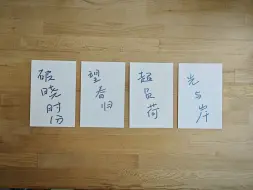 破晓时分
望春归
超负荷
光与岸